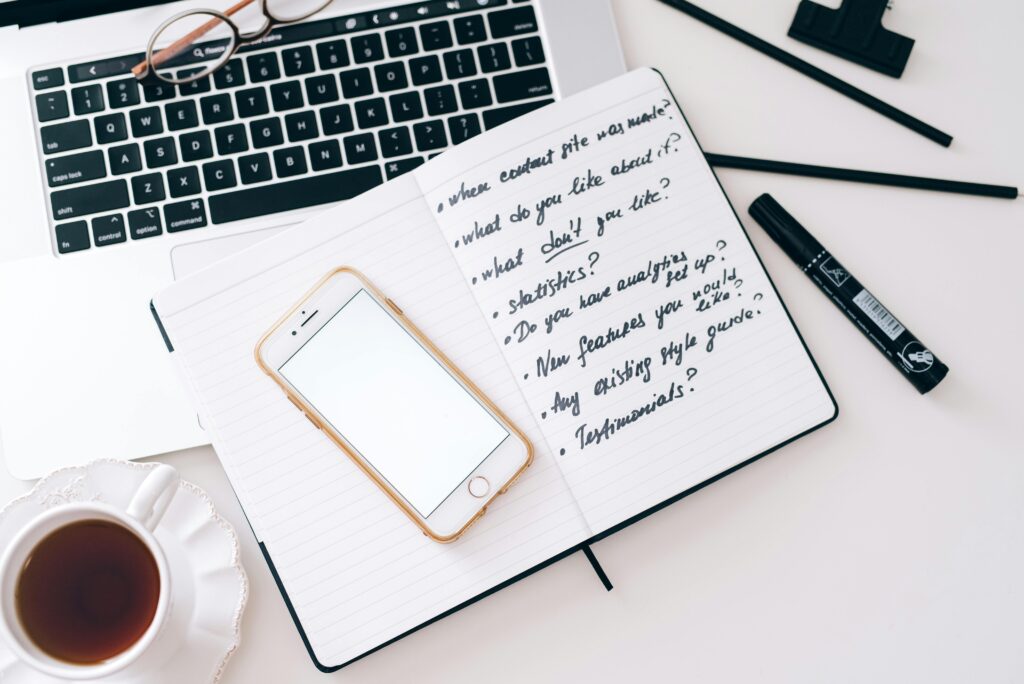 esc
1 2 5 6 7 8 9 0
tab Q W E R T Y U I O P
caps lock A S D F G H J K L return
shift Z X C V B N M
fn control option command
• when content site was made?
• what do you like about it?
• what don't you like?
• statistics?
• Do you have analytics
set up?
• New features you would
like?
• Any existing style guide?
• Testimonials?